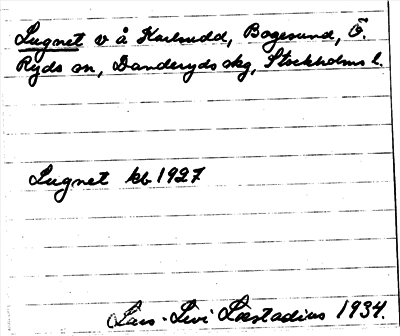 Lugnet v å Karlsudd, Bogesund, Ö.
Ryds sn, Danderyds skg, Stockholms l.
Lugnet kb 1927
Lars-Levi Læstadius 1934.